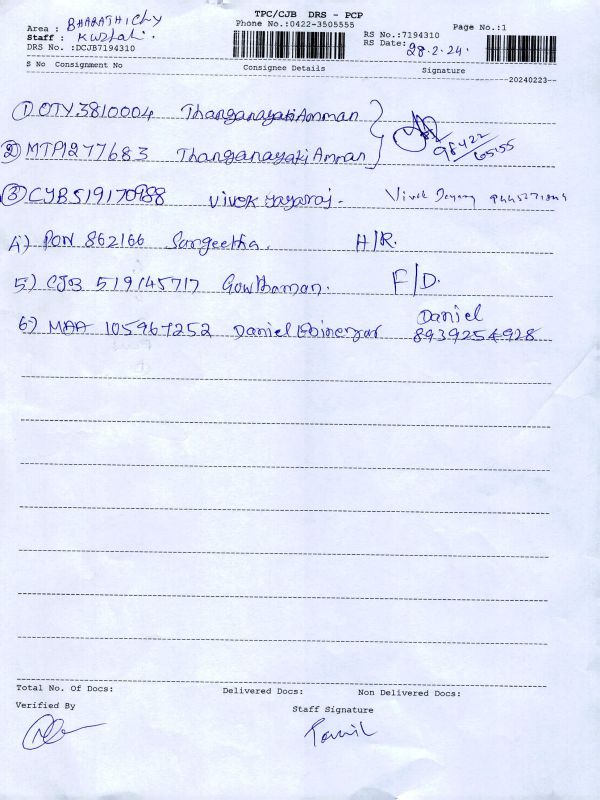 TPC/CJB DRS - PCP
Area : BHARATHI
Phone No.:0422-3505555
Page No.:1
Staff :
RS No.:7194310
DRS No. :DCJB7194310
RS Date: 28.2.24.
S No Consignment No Consignee Details Signature
20240223
1) OTY3810004 Thanganayaki Amman
98422
65155
2) MTP1277683 Thanganayaki Amman
3) CJB519170988 Vivek Jayaraj. Vivek
4) PON 862166 Sangeetha. H/R.
5) CJB 519145717 Gowthaman. F/D.
6) MAA 105967252 Daniel Ebinezar Daniel
8939254928
Total No. Of Docs: Delivered Docs: Non Delivered Docs:
Verified By Staff Signature
Tamil